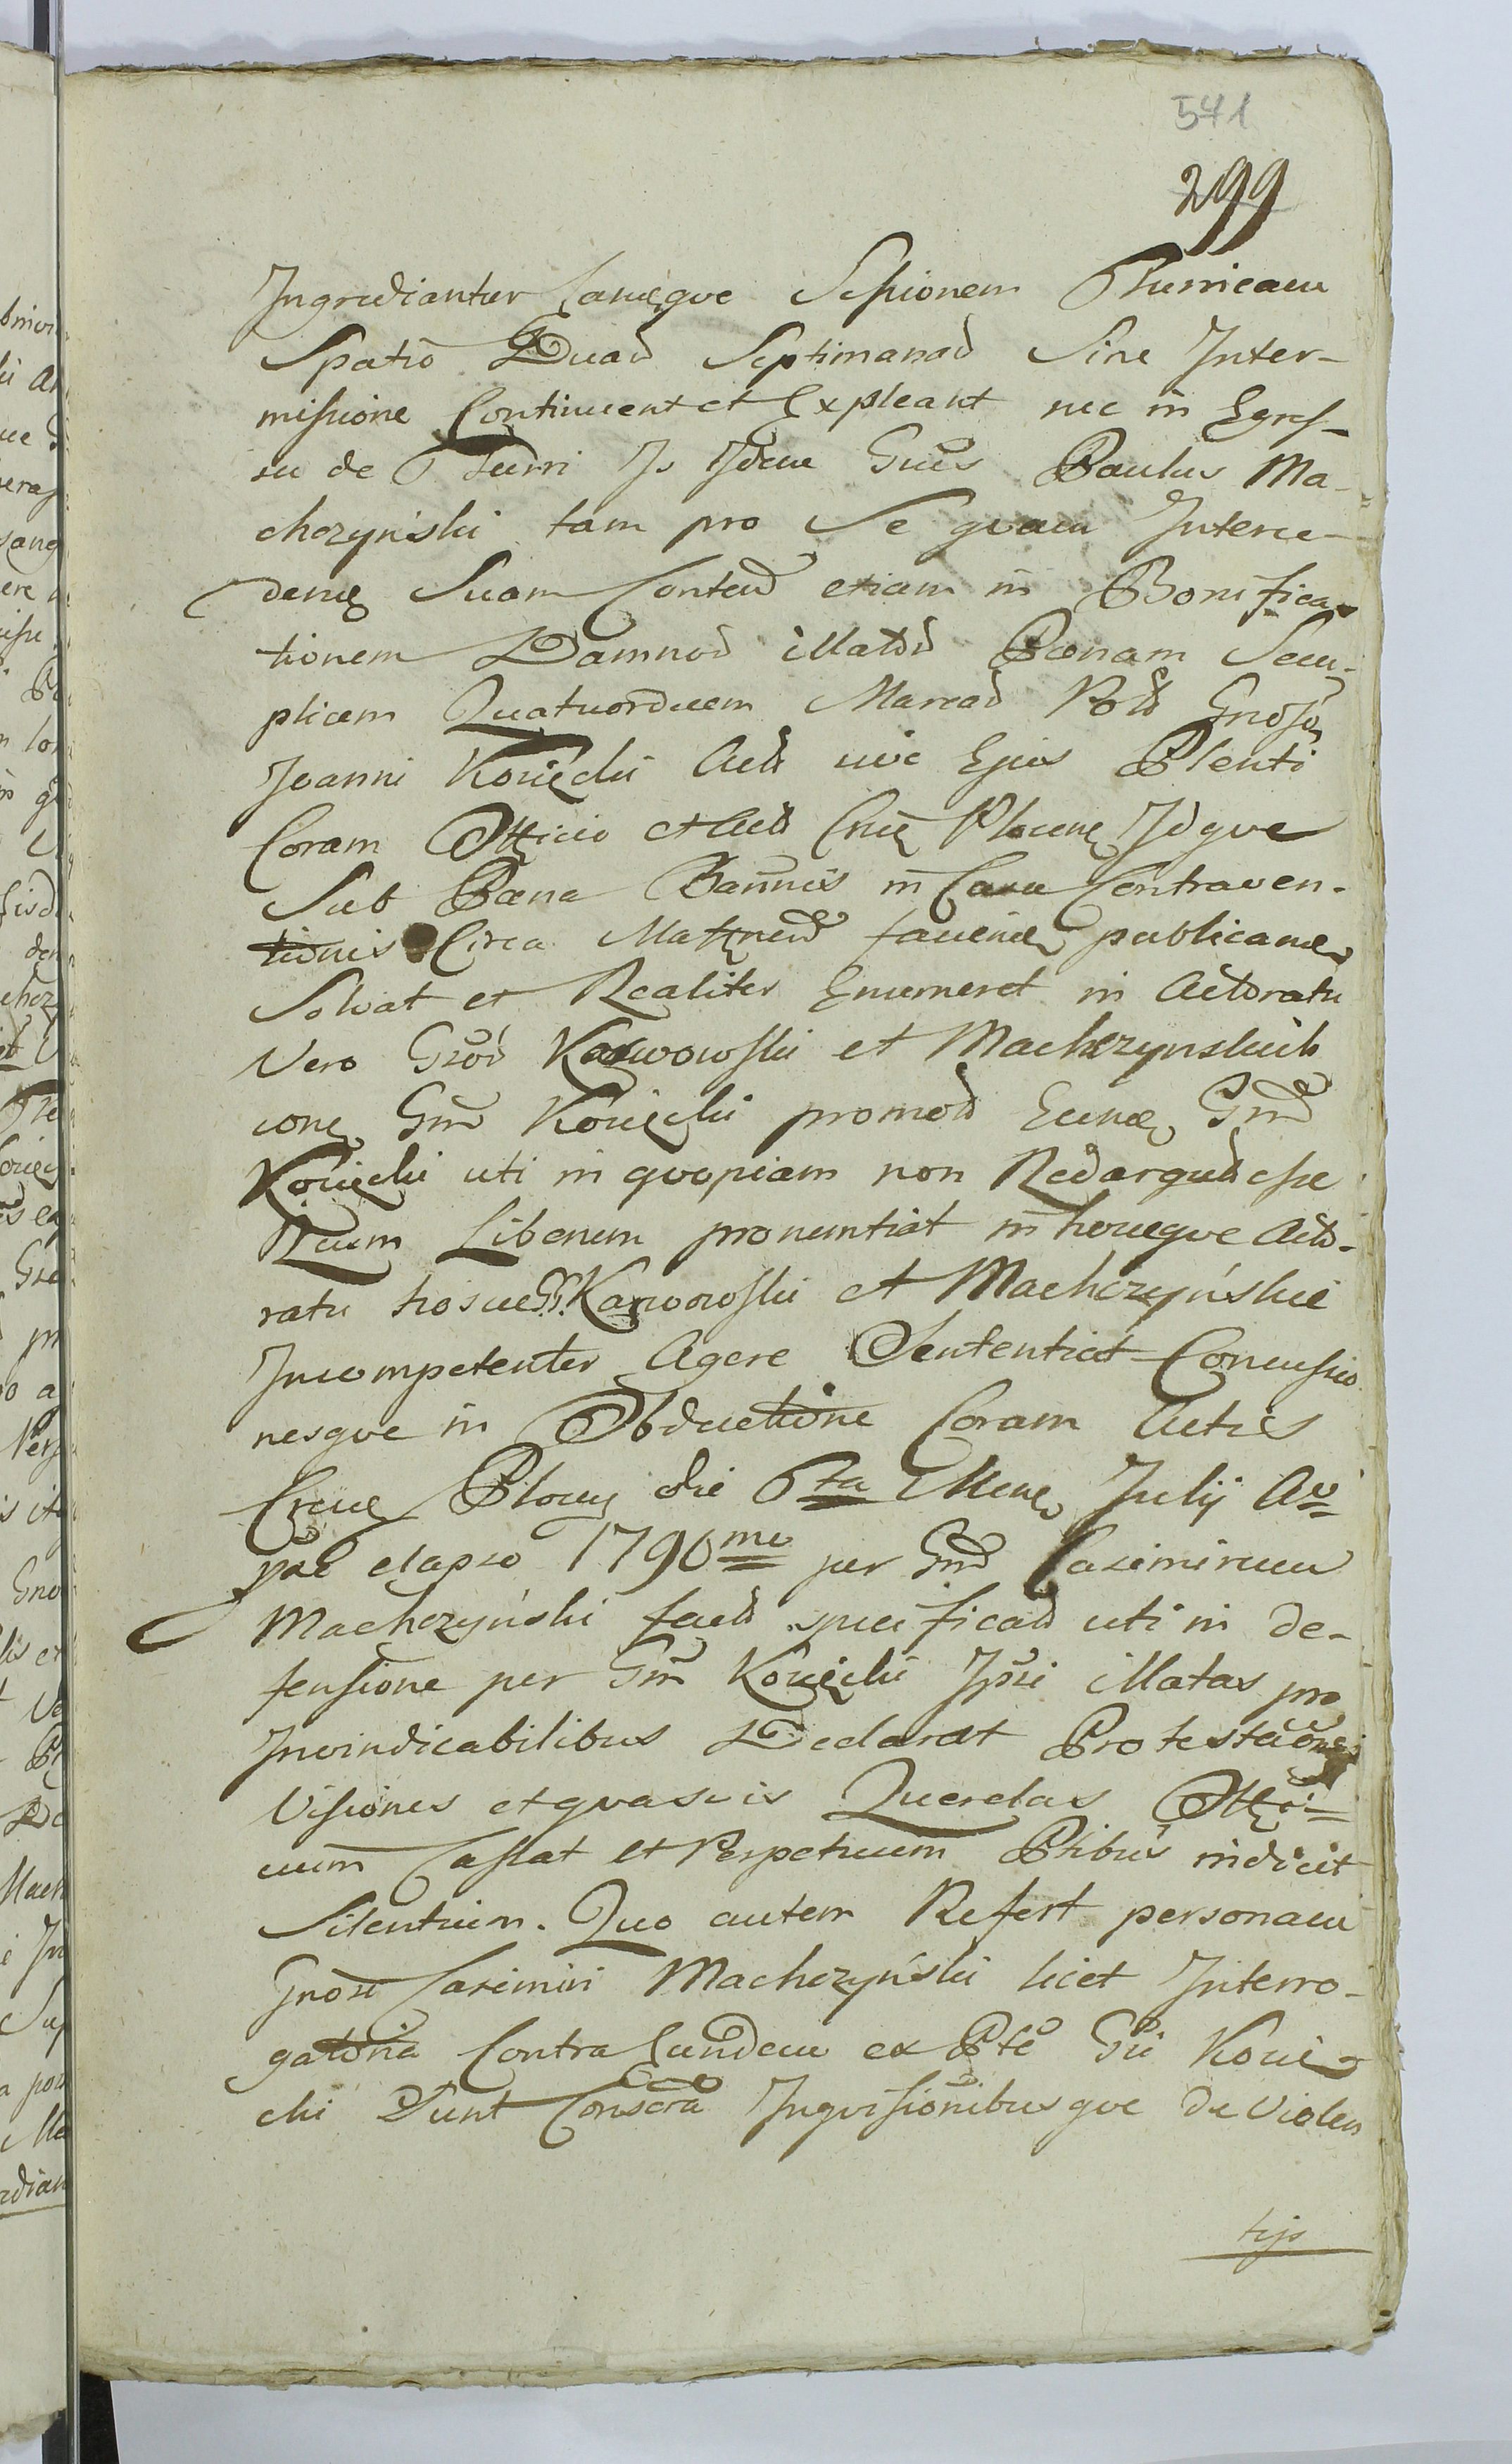 571
299
Ingrediantur Eamqve Sessionem Turricam
Spatio Duad Septimanad Sine Inter-
missione Continuent et Expleant nec in Egres-
su de Turri Is Idem Gnus Paulus Ma-
chczyński tam pro Se qvam Interce-
dene Suam Contend etiam in Bonifica-
tionem Damnod illatod Poenam Sem-
plicem Quatuordecem Marcad Pold Gnoso
Joanni Kowięcki Aut vivc Ejus Plenti
Coram Officio et Actis Crne Plocene Idqve
Sub Poena Bannis in Casu Contraven-
tionis Circa Mattnend favene publicane
Solvat et Realiter Enumeret in Actoratu
Vero Gsod Karwowski et Machczynskich
cone Gnd Kowięcki promod Eunde Gnd
Kowięcki uti in qvopiam non Redargud esse
Reum Liberum pronuntiat in hocceqve Acto-
ratu hosce GG. Karwowski et Machczyński
Incompetenter Agere Sententiat Concussio
nesqve in Obductione Coram Actis
Crsue Plocen die 6ta Mene Julij Ao
pad elapso 1790mo per Gnd Casimirum
Machczyński factd specificad uti in de-
fensione per Gnd Kowięcki Ipsi illatas pro
Invindicabilibus Declarat Protestaones
Visiones et qvasvis Querelas Offi-
cium Cassat et Perpetuum Ptibus indicit
Silentium. Quo autem Refert personam
Gnosi Casimiri Machczyński licet Interro-
gatoria Contra Eundem ex Pte Gni Kowię-
cki Sunt Conscra Inqvisionibusqve De Violen
tijs